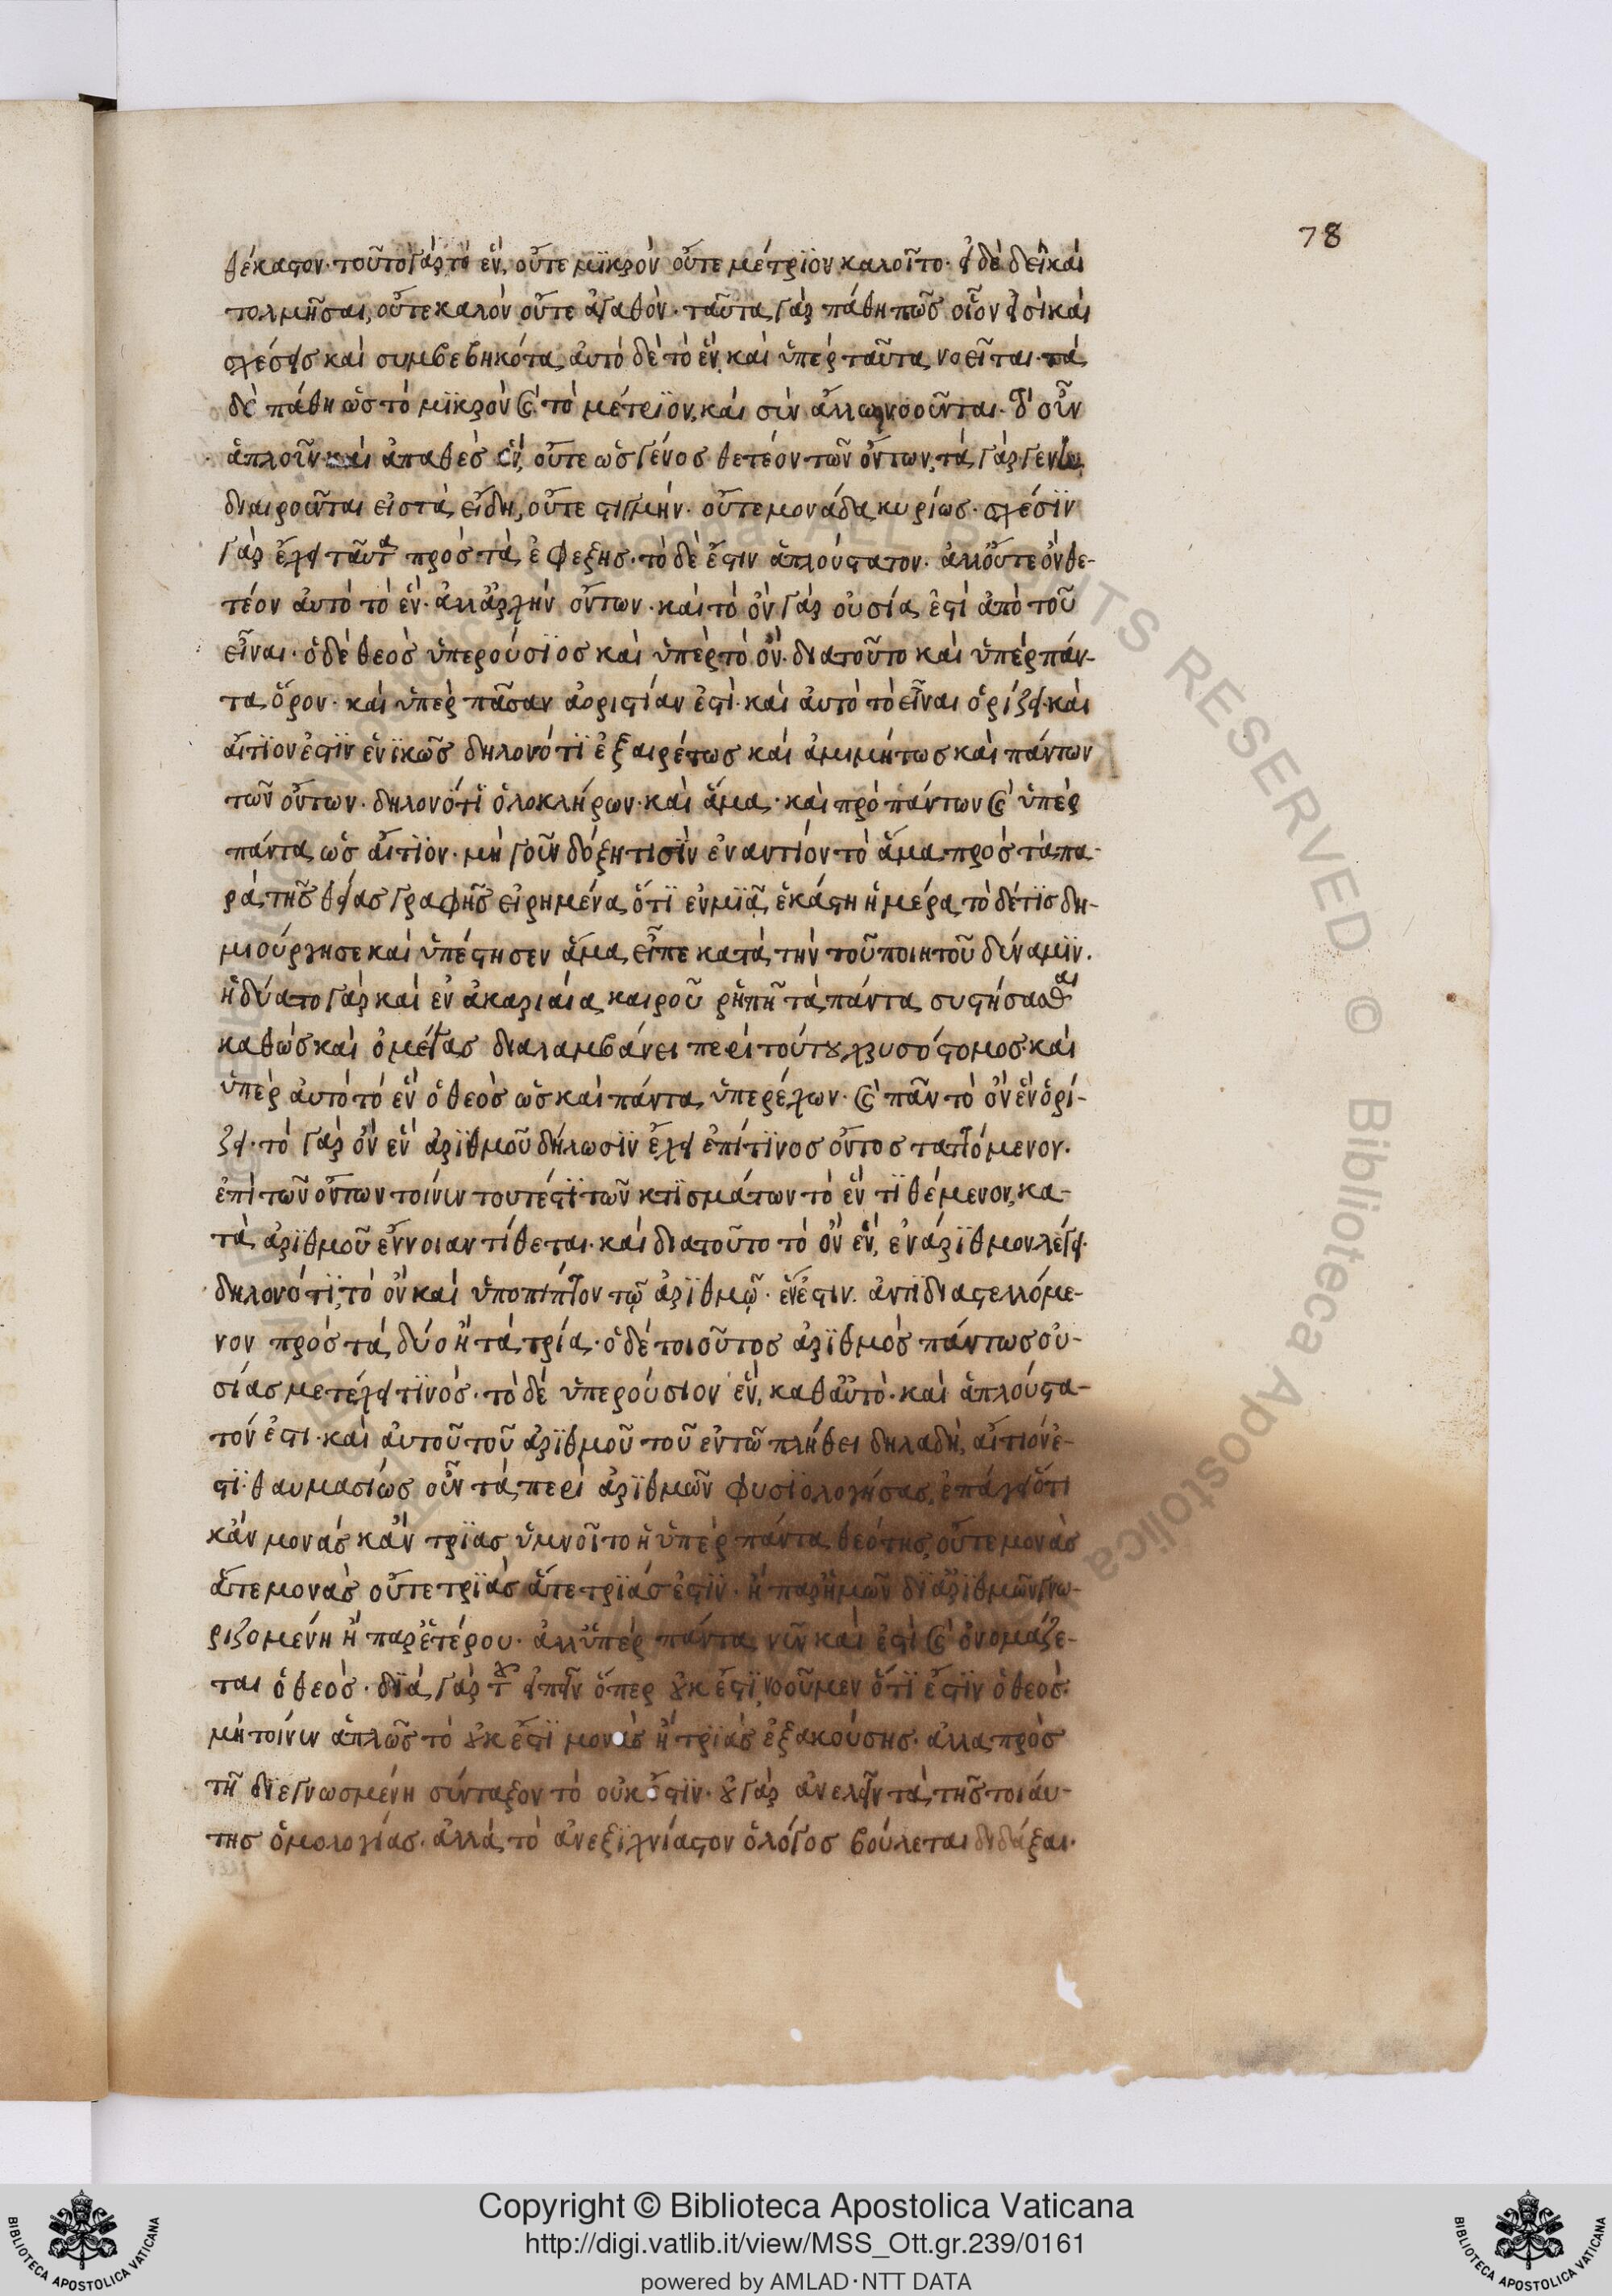 78
θέκαστον· τοῦτο γὰρ τὸ ἓν, οὔτε μϊκρὸν οὔτε μέτρϊον καλοῖτο· εἰ δὲ δεῖ καὶ
τολμῆσαι, οὔτε καλὸν οὔτε ἀγαθὸν· ταῦτα γὰρ πάθη πῶς οἷον εἰσὶ καὶ
σχέσεις καὶ συμβεβηκότα, αὐτὸ δὲ τὸ ἓν, καὶ ὑπὲρ ταῦτα νοεῖται· τὰ
δὲ πάθη ὡς τὸ μϊκρὸν καὶ τὸ μέτρϊον, καὶ σὺν ἄλλω νοοῦνται· τὸ οὖν
ἁπλοῦν καὶ ἀπαθὲς ἓν, οὔτε ὡς γένος θετέον τῶν ὄντων, τὰ γὰρ γένη
διαιροῦνται εἰς τὰ εἴδη, οὔτε στιγμήν· οὔτε μονάδα κυρίως· σχέσϊν
γὰρ ἔχει ταῦτα πρὸς τὰ ἐφεξῆς· τὸ δὲ ἔστιν ἁπλούστατον· ἀλλ οὔτε ὂν θε-
τέον αὐτὸ τὸ ἓν· ἀλλ ἀρχὴν ὄντων· καὶ τὸ ὂν γὰρ οὐσία ἐστὶ ἀπὸ τοῦ
εἶναι· ὁ δὲ θεὸς ὑπερούσϊος καὶ ὑπὲρ τὸ ὂν· διατοῦτο καὶ ὑπὲρ πάν-
τα ὅρον· καὶ ὑπὲρ πᾶσαν ἀοριστίαν ἐστὶ· καὶ αὐτὸ τὸ εἶναι ὁρίζει· καὶ
αἴτϊον ἐστϊν ἑνϊκῶς δηλονότϊ ἐξαιρέτως καὶ ἀμιμήτως καὶ πάντων
τῶν ὄντων· δηλονότϊ ὁλοκλήρων· καὶ ἅμα· καὶ πρὸ πάντων καὶ ὑπὲρ
πάντα ὡς αἴτϊον· μὴ γοῦν δόξη τισὶν ἐναντίον τὸ ἅμα πρὸς τὰ πα-
ρὰ τῆς θείας γραφῆς εἰρημένα, ὅτϊ ἐν μϊᾶ ἑκάστη ἡμέρα τὸ δέ τϊς δη-
μιούργησε καὶ ὑπέστησεν ἅμα, εἶπε κατὰ τὴν τοῦ ποιητοῦ δύναμϊν·
ἠδύατο γὰρ καὶ ἐν ἀκαριαία καιροῦ ρἡπῆ τὰ πάντα συστήσασθαι
καθὼς καὶ ὁ μέγας διαλαμβάνει περὶ τούτου χρυσόστομος· καὶ
ὑπὲρ αὐτὸ τὸ ἓν ὁ θεὸς ὡς καὶ πάντα ὑπερέχων· καὶ πᾶν τὸ ὂν ἓν ὁρί-
ζει· τὸ γὰρ ὂν ἓν ἀρϊθμοῦ δήλωσϊν ἔχει ἐπί τϊνος ὄντος ταττόμενον·
ἐπὶ τῶν ὄντων τοίνυν τουτέστϊ τῶν κτϊσμάτων τὸ ἓν τϊθέμενον, κα-
τὰ ἀρϊθμοῦ ἔννοιαν τίθεται· καὶ διατοῦτο τὸ ὂν ἓν, ἐνάρϊθμον λέγει·
δηλονότϊ, τὸ ὂν καὶ ὑποπίπτον τῷ ἀρϊθμῷ· ἕν ἐστιν· ἀντϊδιαστελλόμε-
νον πρὸς τὰ δύο ἢ τὰ τρία· ὁ δὲ τοιοῦτος ἀρϊθμὸς πάντως οὐ-
σίας μετέχει τϊνὸς· τὸ δὲ ὑπερούσιον ἓν, καθ αὑτὸ· καὶ ἁπλούστα-
τόν ἐστι· καὶ αὐτοῦ τοῦ ἀρϊθμοῦ τοῦ ἐν τῶ πλήθει δηλαδὴ, αἴτιόν ἐ-
στϊ· θαυμασίως οὖν τὰ περὶ ἀρϊθμῶν φυσϊολογήσας, ἐπάγει ὅτι
κἂν μονὰς κἂν τρϊὰς ὑμνοῖτο ἡ ὑπὲρ πάντα θεότης, οὔτε μονὰς
ἅτε μονὰς οὔτε τρϊὰς ἅτε τρϊάς ἐστϊν· ἡ παρ ἡμῶν δϊ ἀρϊθμῶν γνω-
ριζομένη ἢ παρ ἑτέρου· ἀλλ ὑπὲρ πάντα νῦν καὶ ἐστὶ καὶ ὀνομάζε-
ται ὁ θεὸς· δϊὰ γὰρ τοῦ εἰπεῖν ὅπερ οὐκ ἔστϊ, νοοῦμεν ὅτϊ ἔστϊν ὁ θεὸς·
μὴ τοίνυν ἁπλῶς τὸ οὐκ ἔστϊ μονὰς ἢ τρϊὰς ἐξακούσης· ἀλλα πρὸς
τῆ δϊεγνωσμένη σύνταξον τὸ οὐκ ἔστϊν· οὐ γὰρ ἀνελεῖν τὰ τῆς τοιάυ-
της ὁμολογίας· ἀλλὰ τὸ ἀνεξϊχνίαστον ὁ λόγος βούλεται διδάξαι·
Copyright © Biblioteca Apostolica Vaticana
http://digi.vatlib.it/view/MSS_Ott.gr.239/0161
powered by AMLAD·NTT DATA
BIBLIOTECA APOSTOLICA VATICANA
BIBLIOTECA APOSTOLICA VATICANA